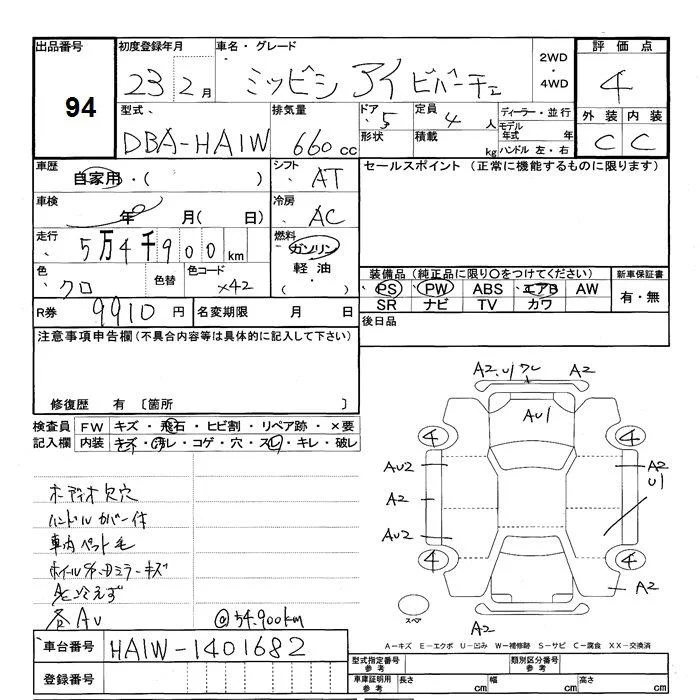 出品番号
94
初度登録年月
23 2月
車名・グレード
ミツビシ アイ ビバーチェ
2WD
・
4WD
評価点
4
型式
DBA-HA1W
排気量
660cc
ドア
5
形状
定員
4人
積載
kg
ディーラー・並行
モデル年式 年
ハンドル 左・右
外装 内装
C C
車歴
自家用・( )
シフト
AT
セールスポイント (正常に機能するものに限ります)
車検
年 月( 日)
冷房
AC
走行
5万4千900km
燃料
ガソリン
軽油
( )
色
クロ
色替
色コード
X42
装備品 (純正品に限り○をつけてください)
新車保証書
PS PW ABS エアB AW
有・無
SR ナビ TV カワ
R券 9910円
名変期限 月 日
後日品
注意事項申告欄(不具合内容等は具体的に記入して下さい)
修復歴 有 〔箇所 〕
検査員記入欄
FW キズ・飛石・ヒビ割・リペア跡・×要
内装 キズ・汚レ・コゲ・穴・スレ・キレ・破レ
オーディオ欠穴
ハンドルカバー付
車内ペット毛
ホイルS/C、Dミラーキズ
AC冷えず
各AU
@54,900km
A2.U1 ワレ
A2
AU1
4
4
AU2
A2
U1
A2
AU2
4
4
A2
スペア
A2
A-キズ E-エクボ U-凹み W-補修跡 S-サビ C-腐食 XX-交換済
車台番号
HA1W-1401682
登録番号
型式指定番号
参考
類別区分番号
参考
車庫証明用
参考
長さ cm
幅 cm
高さ cm